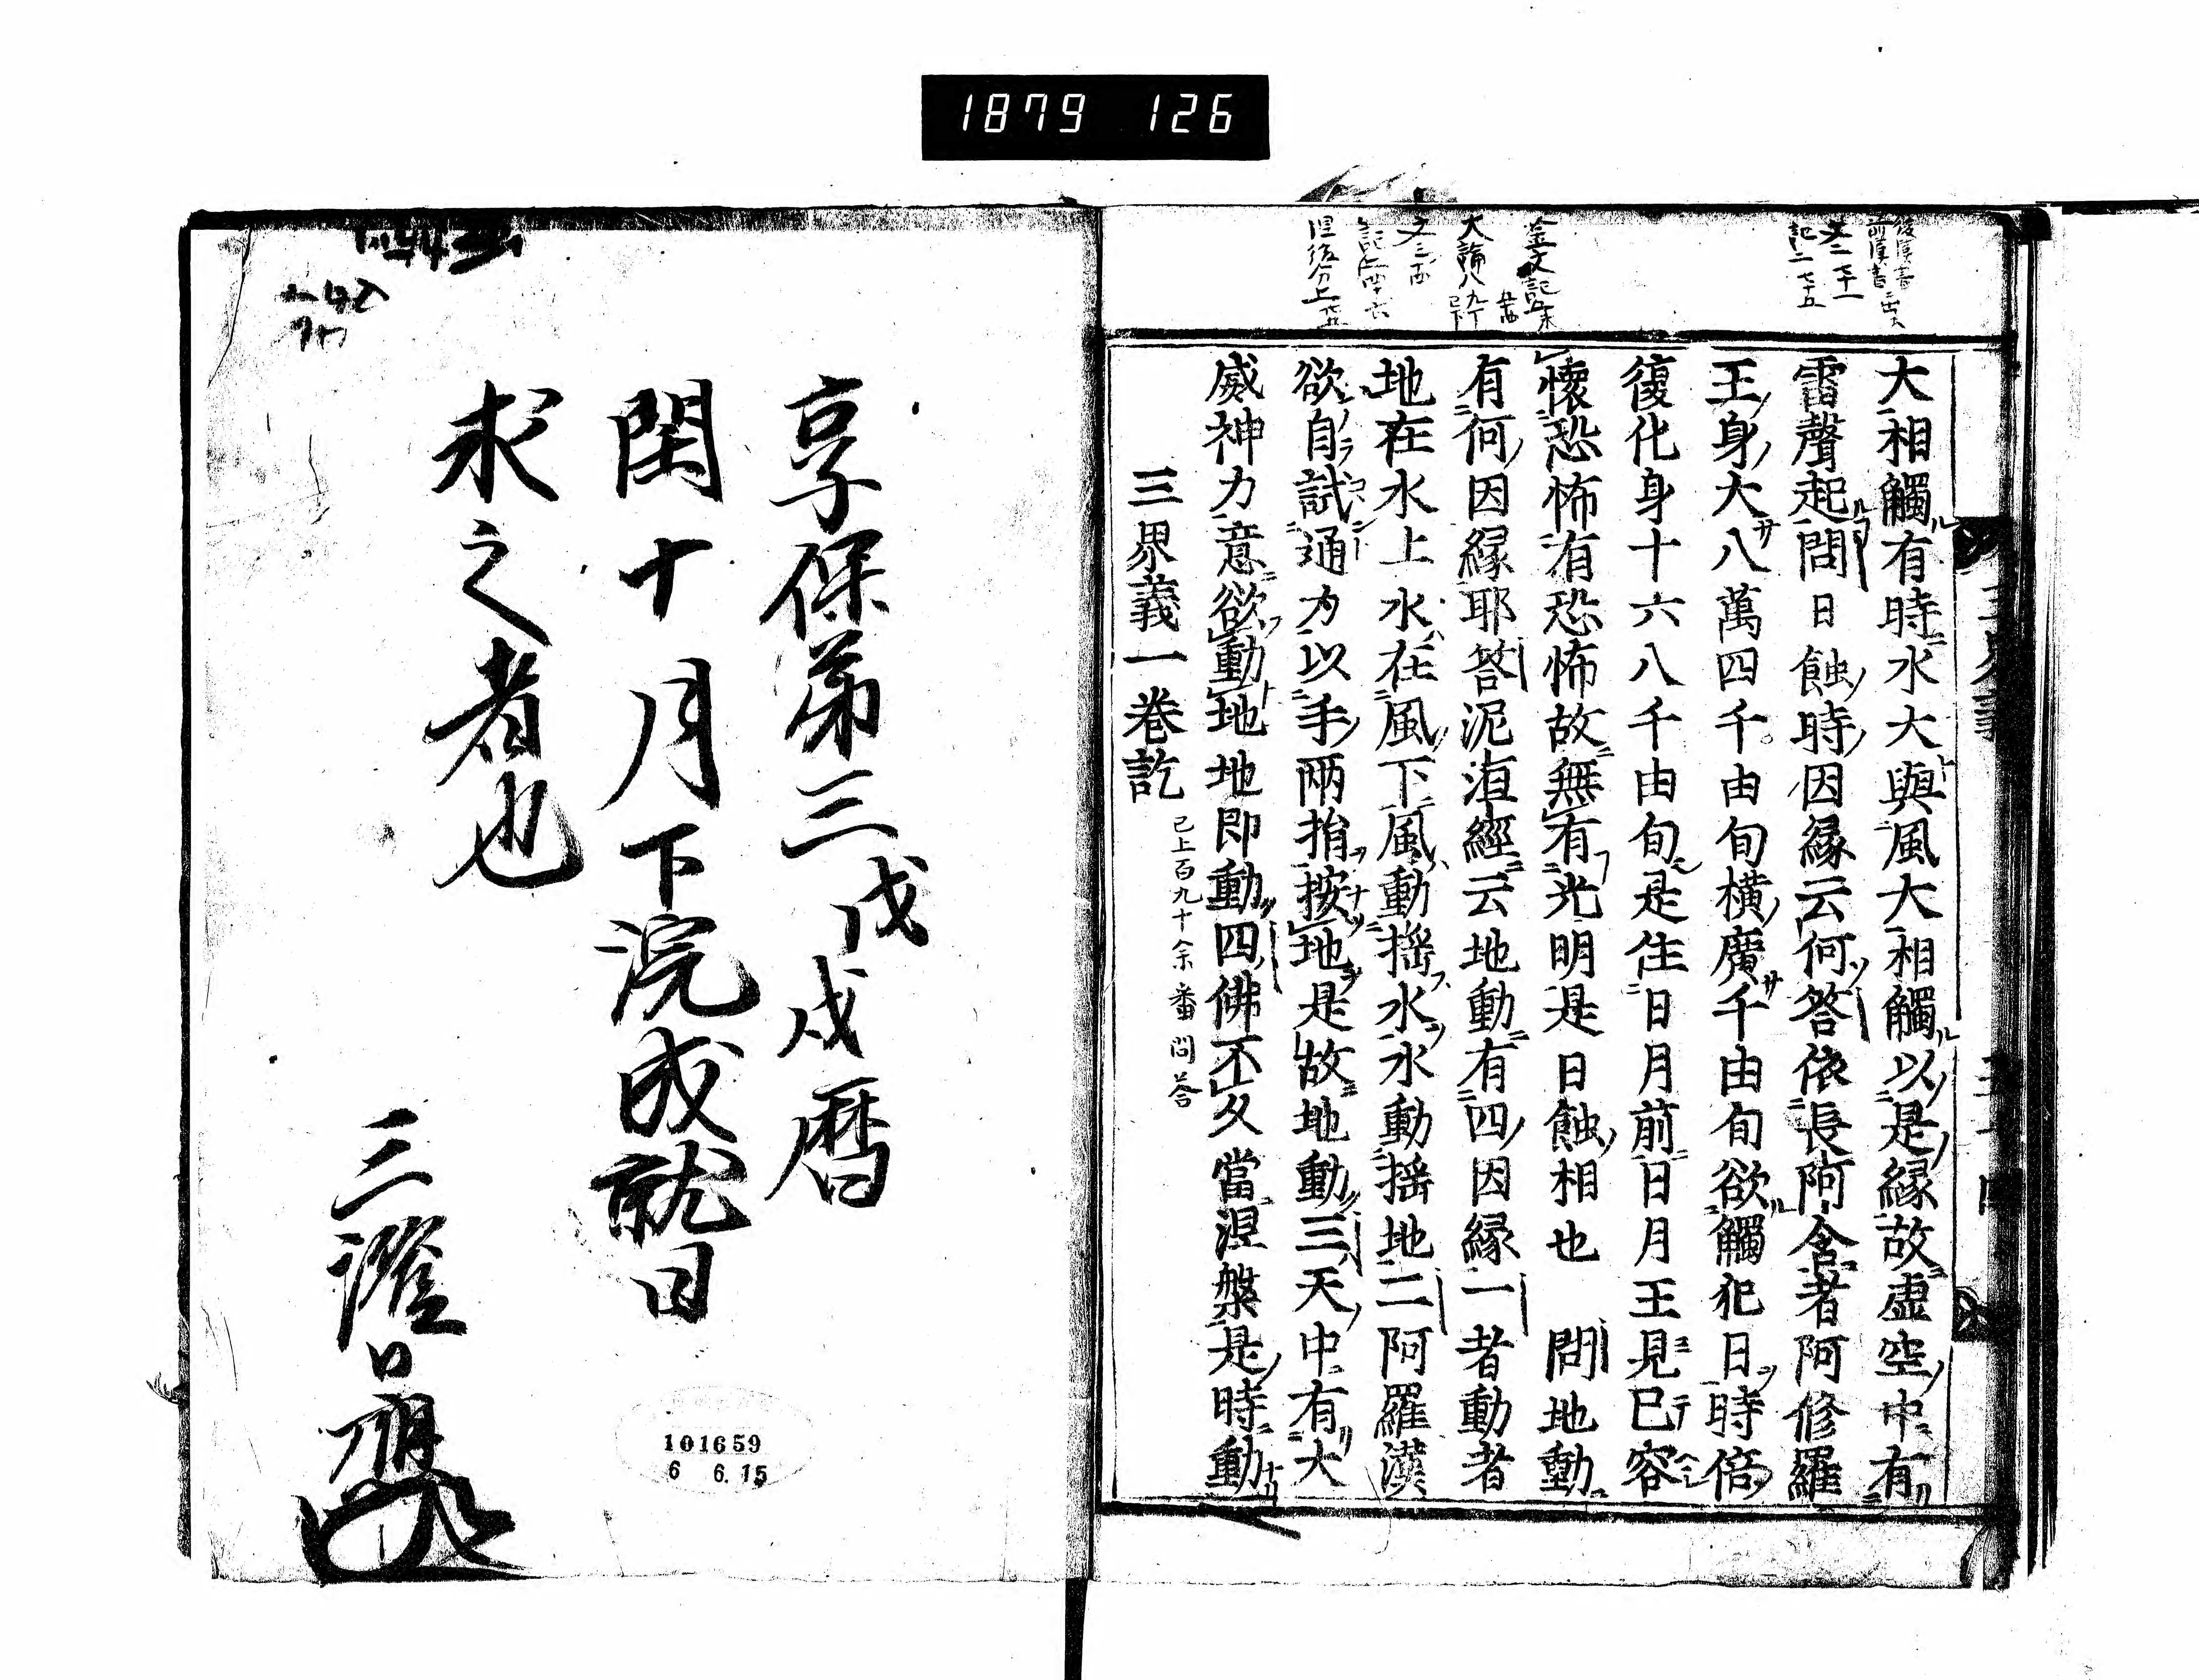 1879 126
大相觸有時水大與風大相觸以是緣故虛空中有
雷聲起問日蝕時因緣云何答依長阿含者阿修羅
王身大八萬四千由旬橫廣千由旬欲觸犯日時倍
復化身十六八千由旬是住日月前日月王見已容
懷恐怖有恐怖故無有光明是日蝕相也 問地動
有何因緣耶答泥洹經云地動有四因緣一者動者
地在水上水在風下風動搖水水動搖地二阿羅漢
欲自試通力以手兩指按地是故地動三天中有大
威神力意欲動地地即動四佛不久當涅槃是時動
三界義一卷訖
已上百九十余番問答
享保第三戊戌曆
閏十月下浣成就日
求之者也
三澄
101659
6 6.15